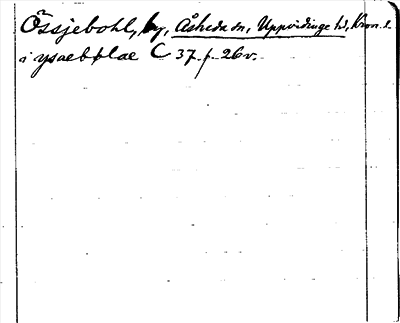 Össjebohl, by, Åsheda sn, Uppvidinge hd, Kron. l.
i ysaebblae C 37 f. 26v.